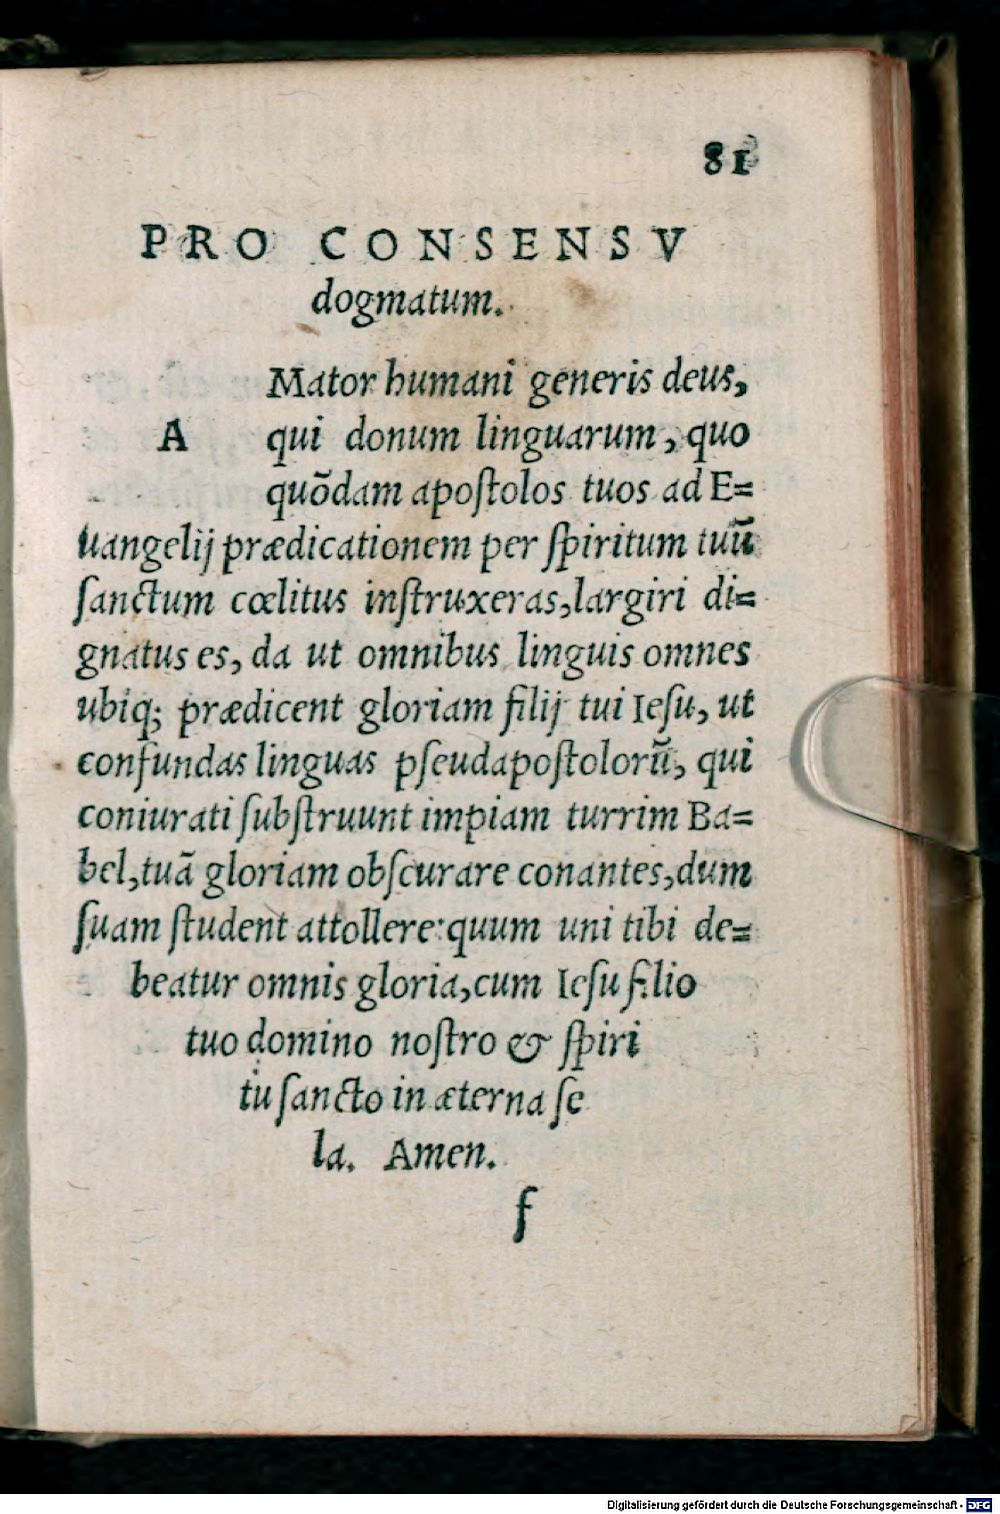 81
PRO CONSENSV
dogmatum.
Mator humani generis deus,
A qui donum linguarum, quo
quōdam apoſtolos tuos ad E=
uangelij prædicationem per ſpiritum tuū
ſanctum cœlitus inſtruxeras, largiri di=
gnatus es, da ut omnibus linguis omnes
ubiq; prædicent gloriam filij tui Ieſu, ut
confundas linguas pſeudapoſtolorū, qui
coniurati ſubſtruunt impiam turrim Ba=
bel, tuā gloriam obſcurare conantes, dum
ſuam ſtudent attollere: quum uni tibi de=
beatur omnis gloria, cum Ieſu filio
tuo domino noſtro & ſpiri
tu ſancto in æterna ſe
la. Amen.
f
Digitalisierung gefördert durch die Deutsche Forschungsgemeinschaft - DFG